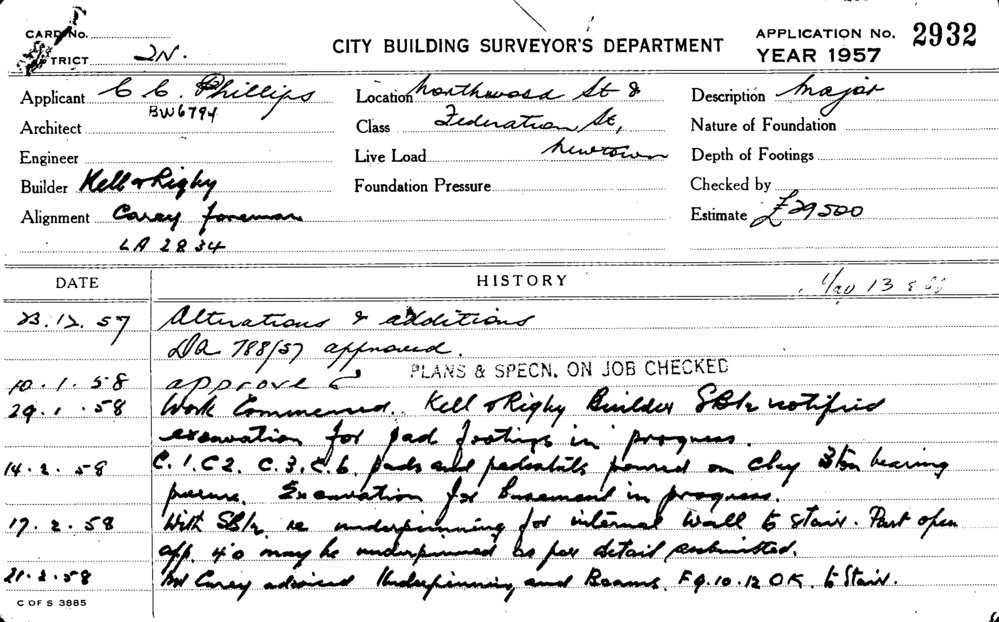 CARD No.
CITY BUILDING SURVEYOR'S DEPARTMENT
APPLICATION No. 2932
TRICT 2N.
YEAR 1957
Applicant C C. Phillips
Location Northwood St &
Description Major
BW6794
Architect
Class Federation St,
Nature of Foundation
Engineer
Live Load Newtown
Depth of Footings
Builder Kell & Rigby
Foundation Pressure
Checked by
Alignment Carey foreman
Estimate £29500
LA 2834
DATE HISTORY
May 13
23.12.57 Alterations & additions
DA 788/57 approved.
10.1.58 approve PLANS & SPECN. ON JOB CHECKED
29.1.58 Work Commenced. Kell & Rigby Builder notified
excavation for pad footings in progress.
14.2.58 C.1. C2. C.3. C.6. pads and pedestals poured on clay 3 ton bearing
pressure. Excavation for basement in progress.
17.2.58 With re underpinning for internal wall to stair. Part open
app. 4'0 may be underpinned as per detail submitted.
21.2.58 Mr Carey advised Underpinning and Beams F 9.10.12 OK. to Stair.
C OF S 3885